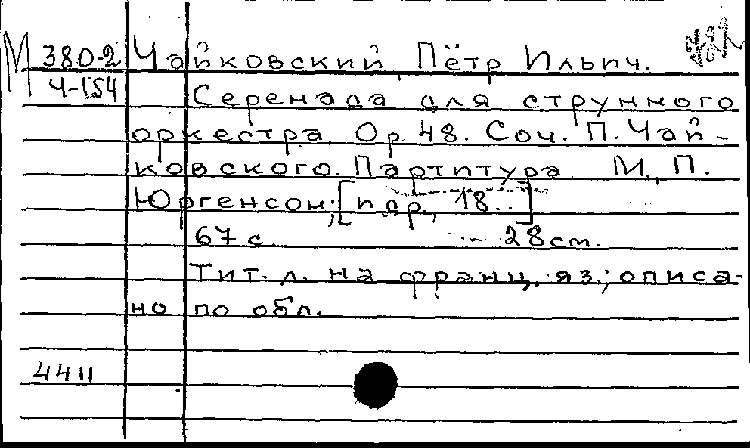 М 380-2 Чайковский, Пётр Ильич.
Ч-154 Серенада для струнного
оркестра Ор. 48. Соч. П. Чай-
ковского. Партитура М., П.
Юргенсон, [пдр., 18..]
67 с. 28 cm.
Тит. л. на франц. яз.; описа-
но по обл.
4411